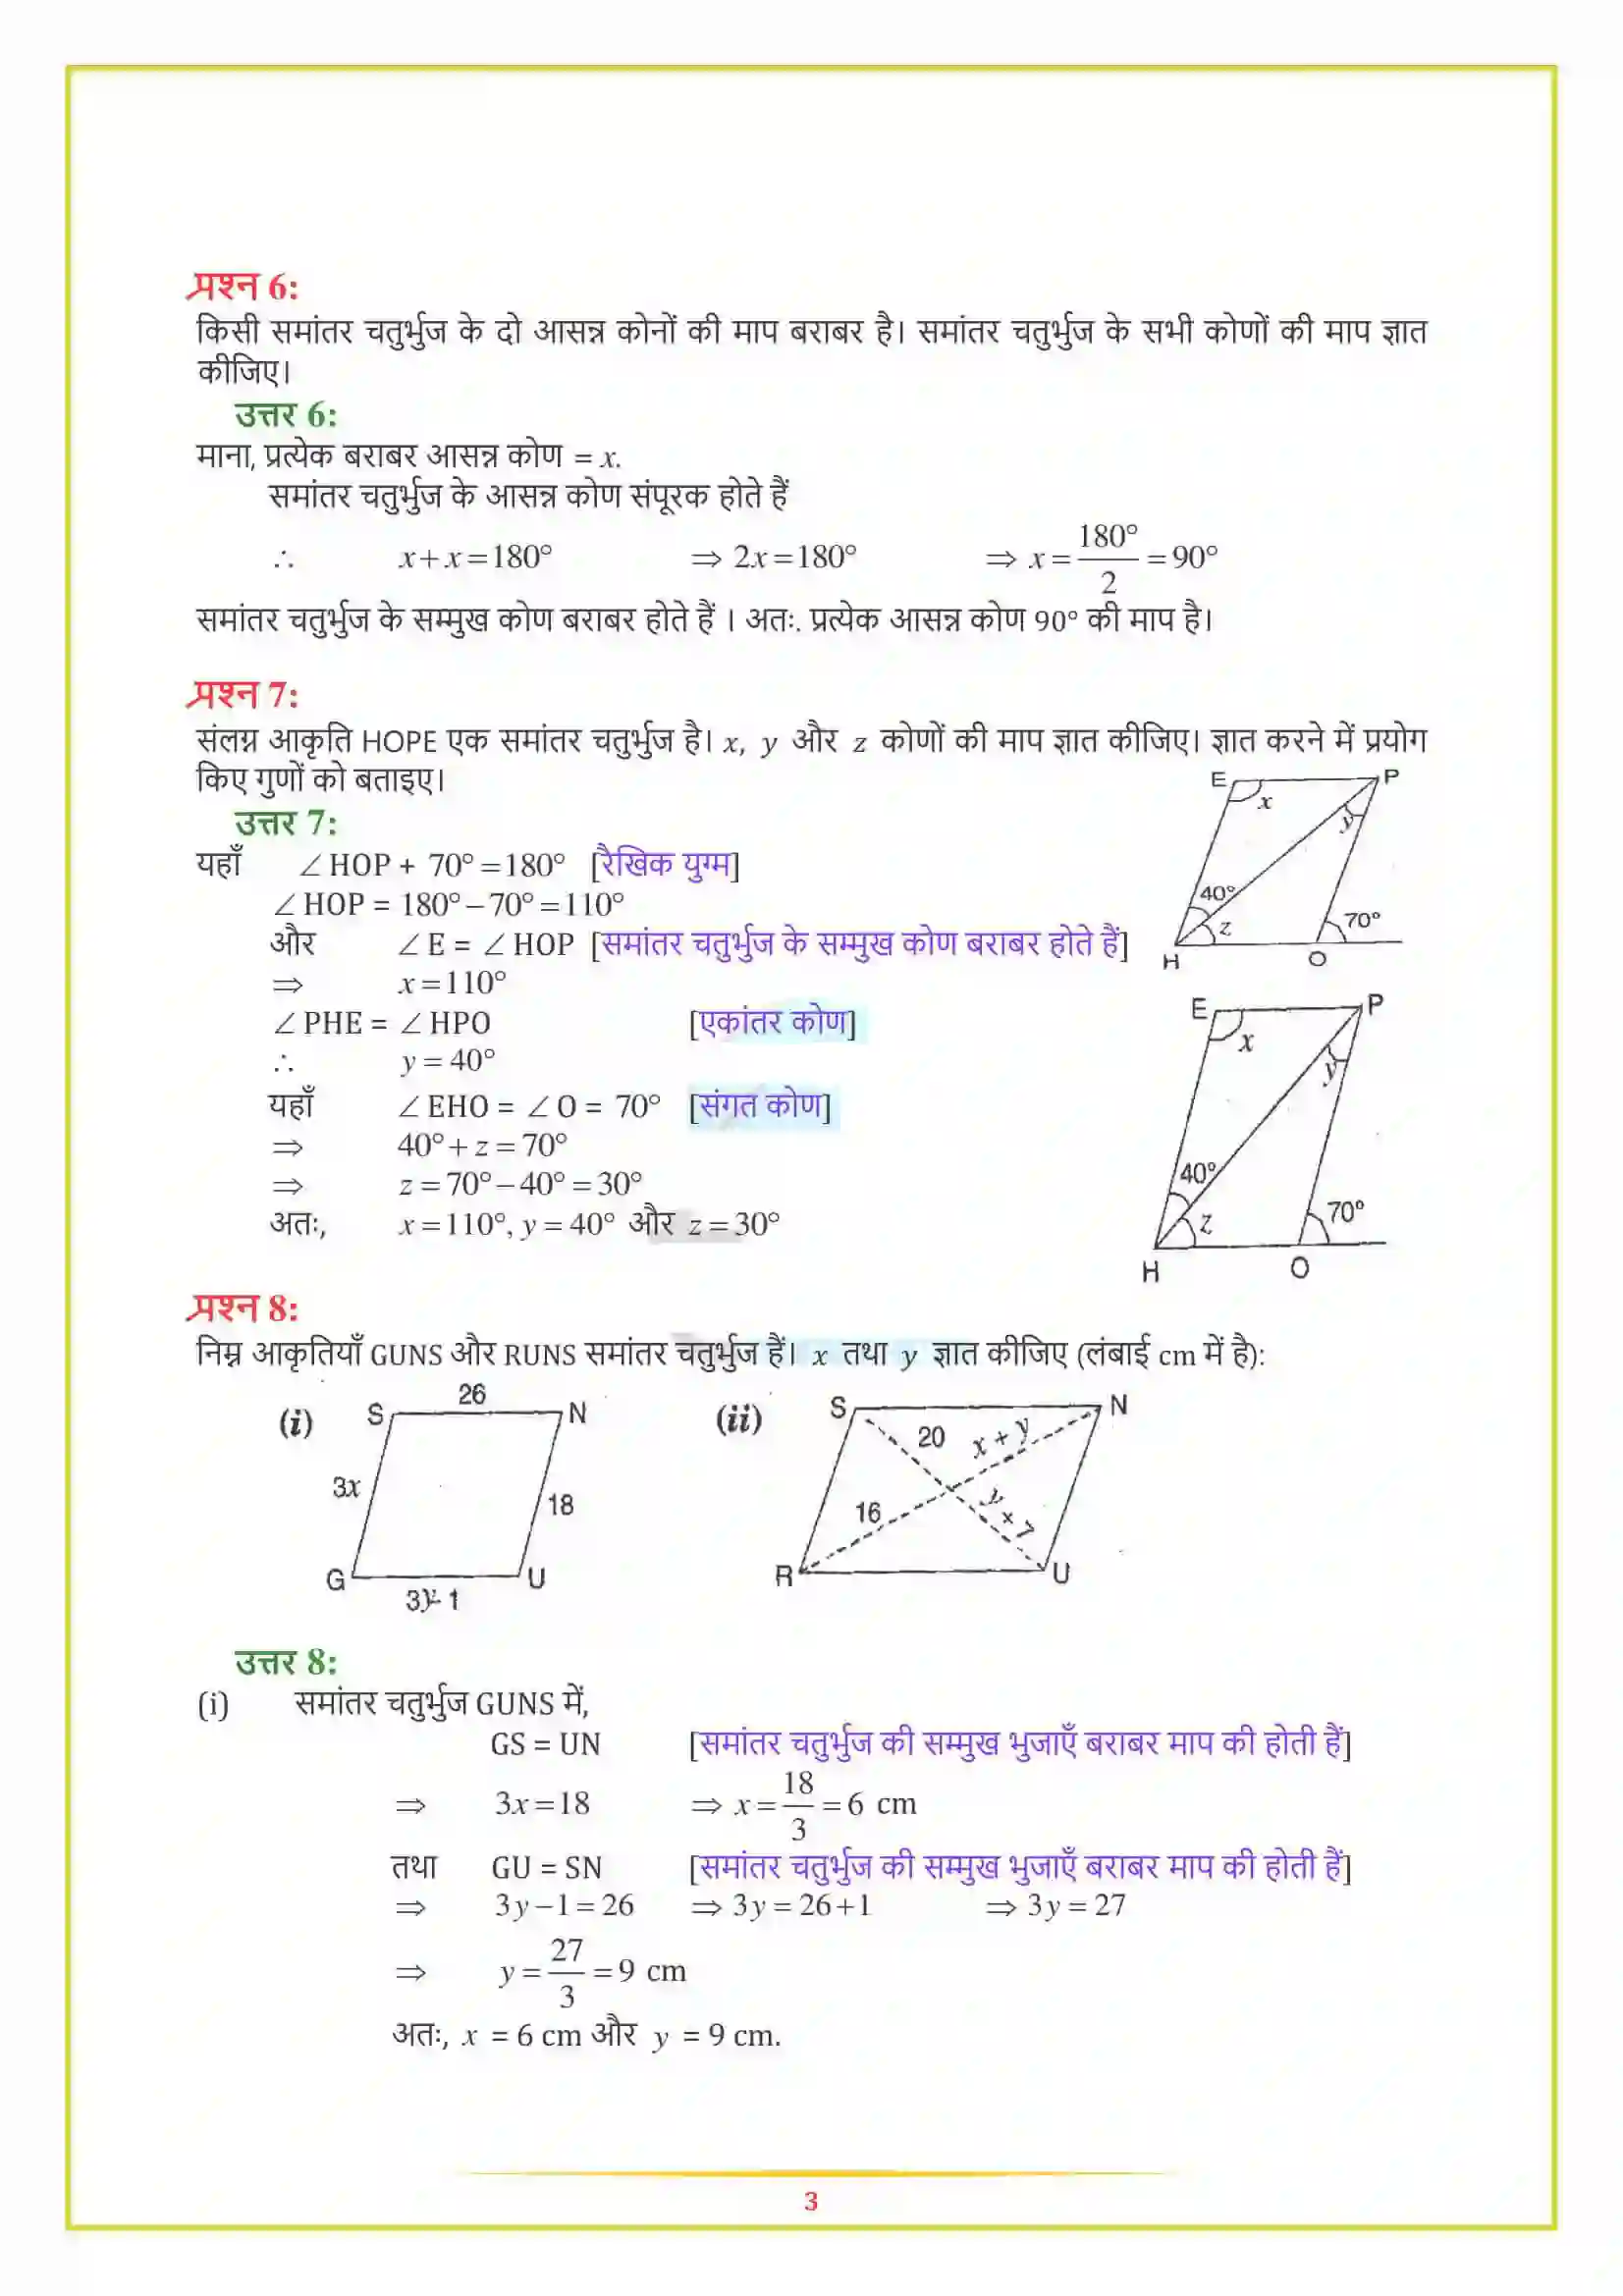 प्रश्न 6:
किसी समांतर चतुर्भुज के दो आसन्न कोनों की माप बराबर है। समांतर चतुर्भुज के सभी कोणों की माप ज्ञात
कीजिए।
उत्तर 6:
माना, प्रत्येक बराबर आसन्न कोण = x.
समांतर चतुर्भुज के आसन्न कोण संपूरक होते हैं
∴ x + x = 180° ⇒ 2x = 180° ⇒ x = 180°/2 = 90°
समांतर चतुर्भुज के सम्मुख कोण बराबर होते हैं । अतः. प्रत्येक आसन्न कोण 90° की माप है।
प्रश्न 7:
संलग्न आकृति HOPE एक समांतर चतुर्भुज है। x, y और z कोणों की माप ज्ञात कीजिए। ज्ञात करने में प्रयोग
किए गुणों को बताइए।
E P x y 40° z 70° H O
उत्तर 7:
यहाँ ∠HOP + 70° = 180° [रैखिक युग्म]
∠HOP = 180° – 70° = 110°
और ∠E = ∠HOP [समांतर चतुर्भुज के सम्मुख कोण बराबर होते हैं]
⇒ x = 110°
∠PHE = ∠HPO [एकांतर कोण]
∴ y = 40°
यहाँ ∠EHO = ∠O = 70° [संगत कोण]
⇒ 40° + z = 70°
⇒ z = 70° – 40° = 30°
अतः, x = 110°, y = 40° और z = 30°
E P x y 40° z 70° H O
प्रश्न 8:
निम्न आकृतियाँ GUNS और RUNS समांतर चतुर्भुज हैं। x तथा y ज्ञात कीजिए (लंबाई cm में है):
(i) S 26 N 3x 18 G U 3y-1
(ii) S N 20 x + y 16 y + 7 R U
उत्तर 8:
(i) समांतर चतुर्भुज GUNS में,
GS = UN [समांतर चतुर्भुज की सम्मुख भुजाएँ बराबर माप की होती हैं]
⇒ 3x = 18 ⇒ x = 18/3 = 6 cm
तथा GU = SN [समांतर चतुर्भुज की सम्मुख भुजाएँ बराबर माप की होती हैं]
⇒ 3y – 1 = 26 ⇒ 3y = 26 + 1 ⇒ 3y = 27
⇒ y = 27/3 = 9 cm
अतः, x = 6 cm और y = 9 cm.
3